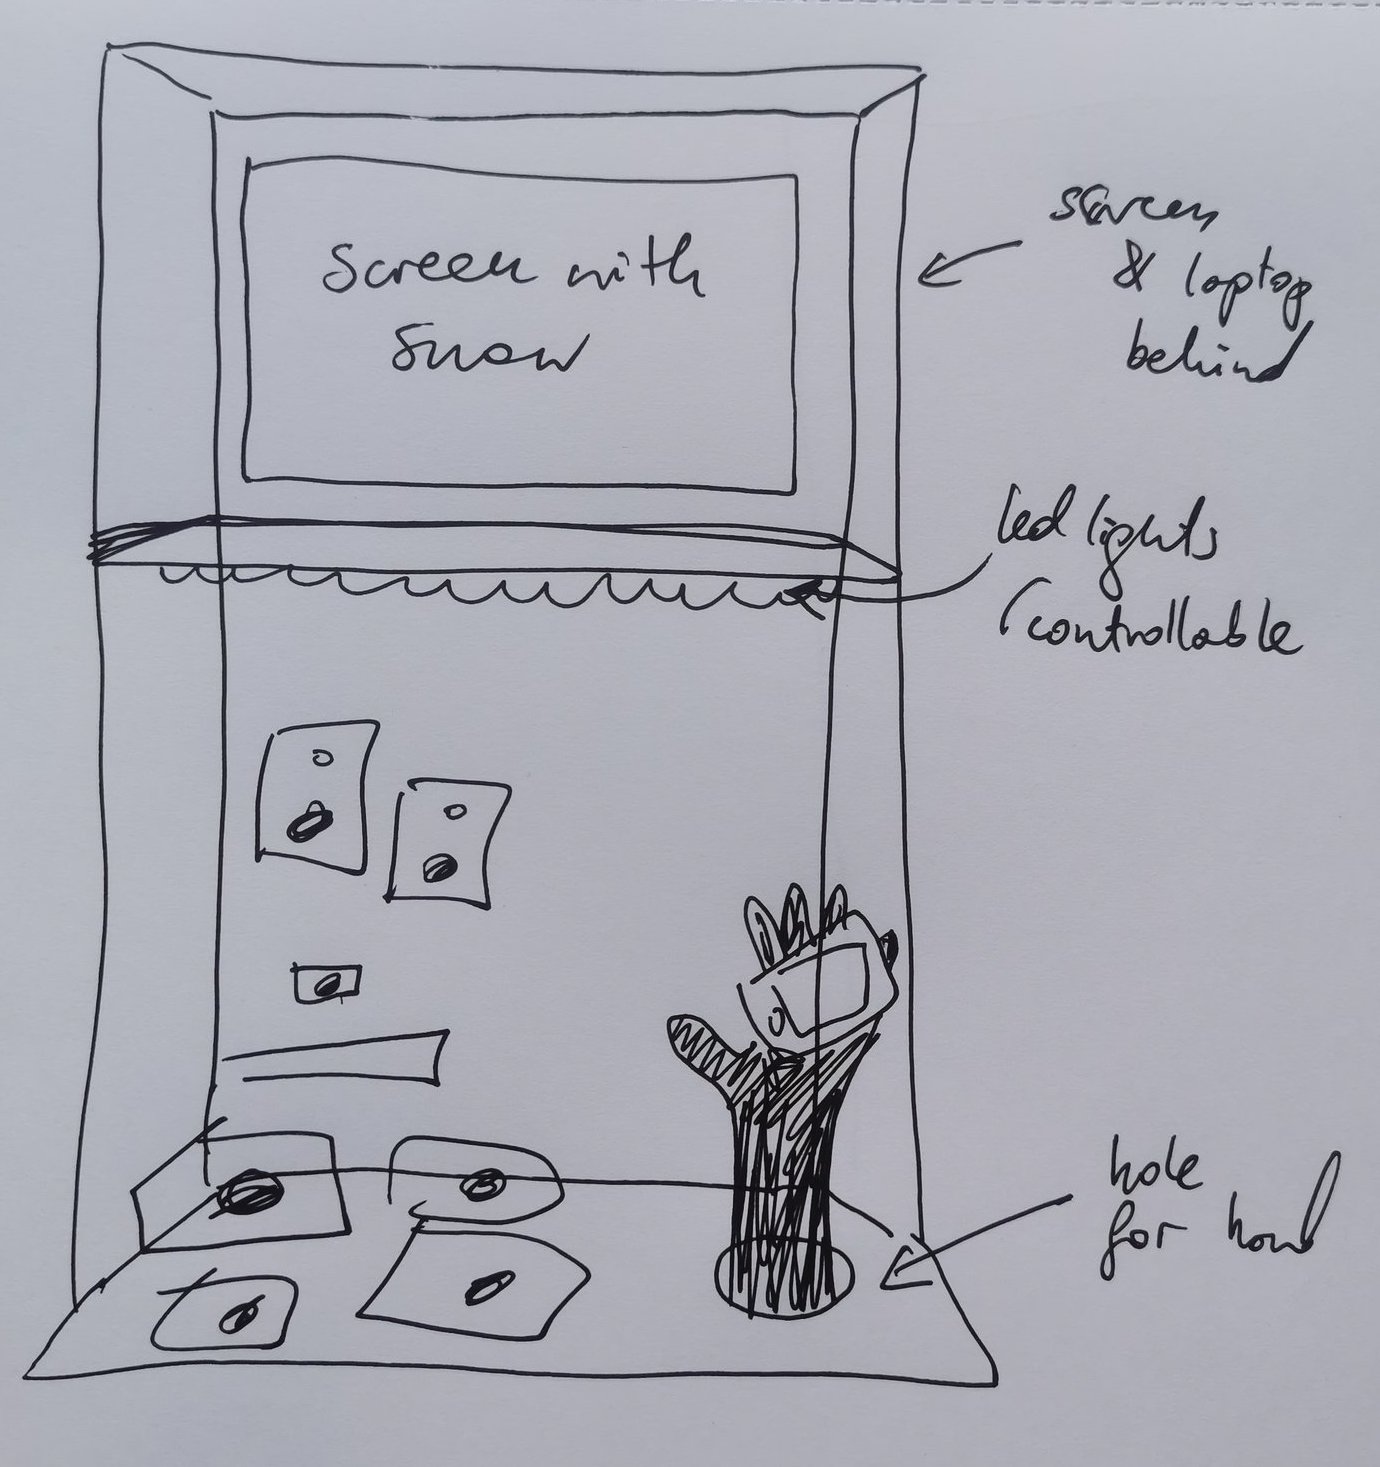 Screen with
Snow
screen
& laptop
behind
led lights
(controllable
hole
for hand